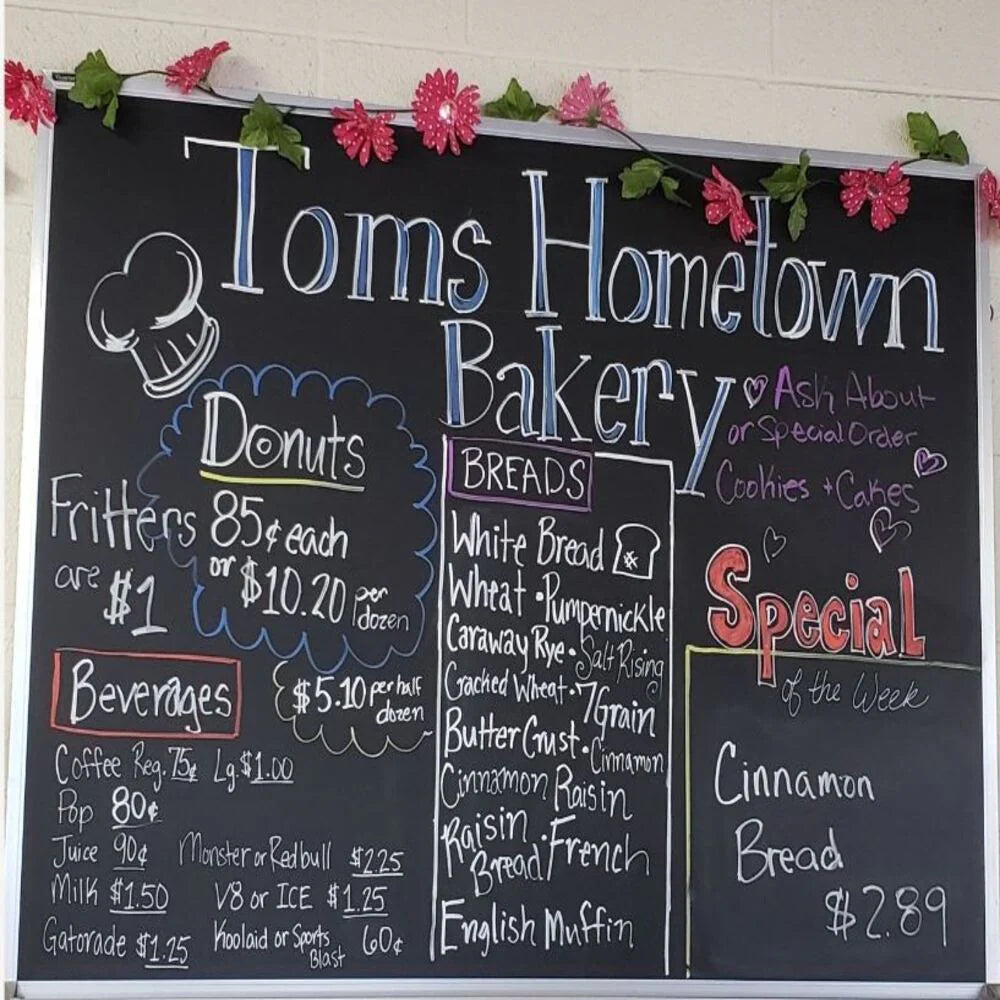 Toms Hometown
Bakery
Ask About
or Special Order
Cookies + Cakes
Donuts
85¢ each
or $10.20 per
dozen
Fritters
are $1
$5.10 per half
dozen
Beverages
Coffee Reg. 75¢ Lg. $1.00
Pop 80¢
Juice 90¢ Monster or Redbull $2.25
Milk $1.50 V8 or ICE $1.25
Gatorade $1.25 Koolaid or Sports
Blast 60¢
BREADS
White Bread
Wheat • Pumpernickle
Caraway Rye • Salt Rising
Cracked Wheat • 7 Grain
Butter Crust • Cinnamon
Cinnamon Raisin
Raisin
Bread • French
English Muffin
Special
of the Week
Cinnamon
Bread
$2.89